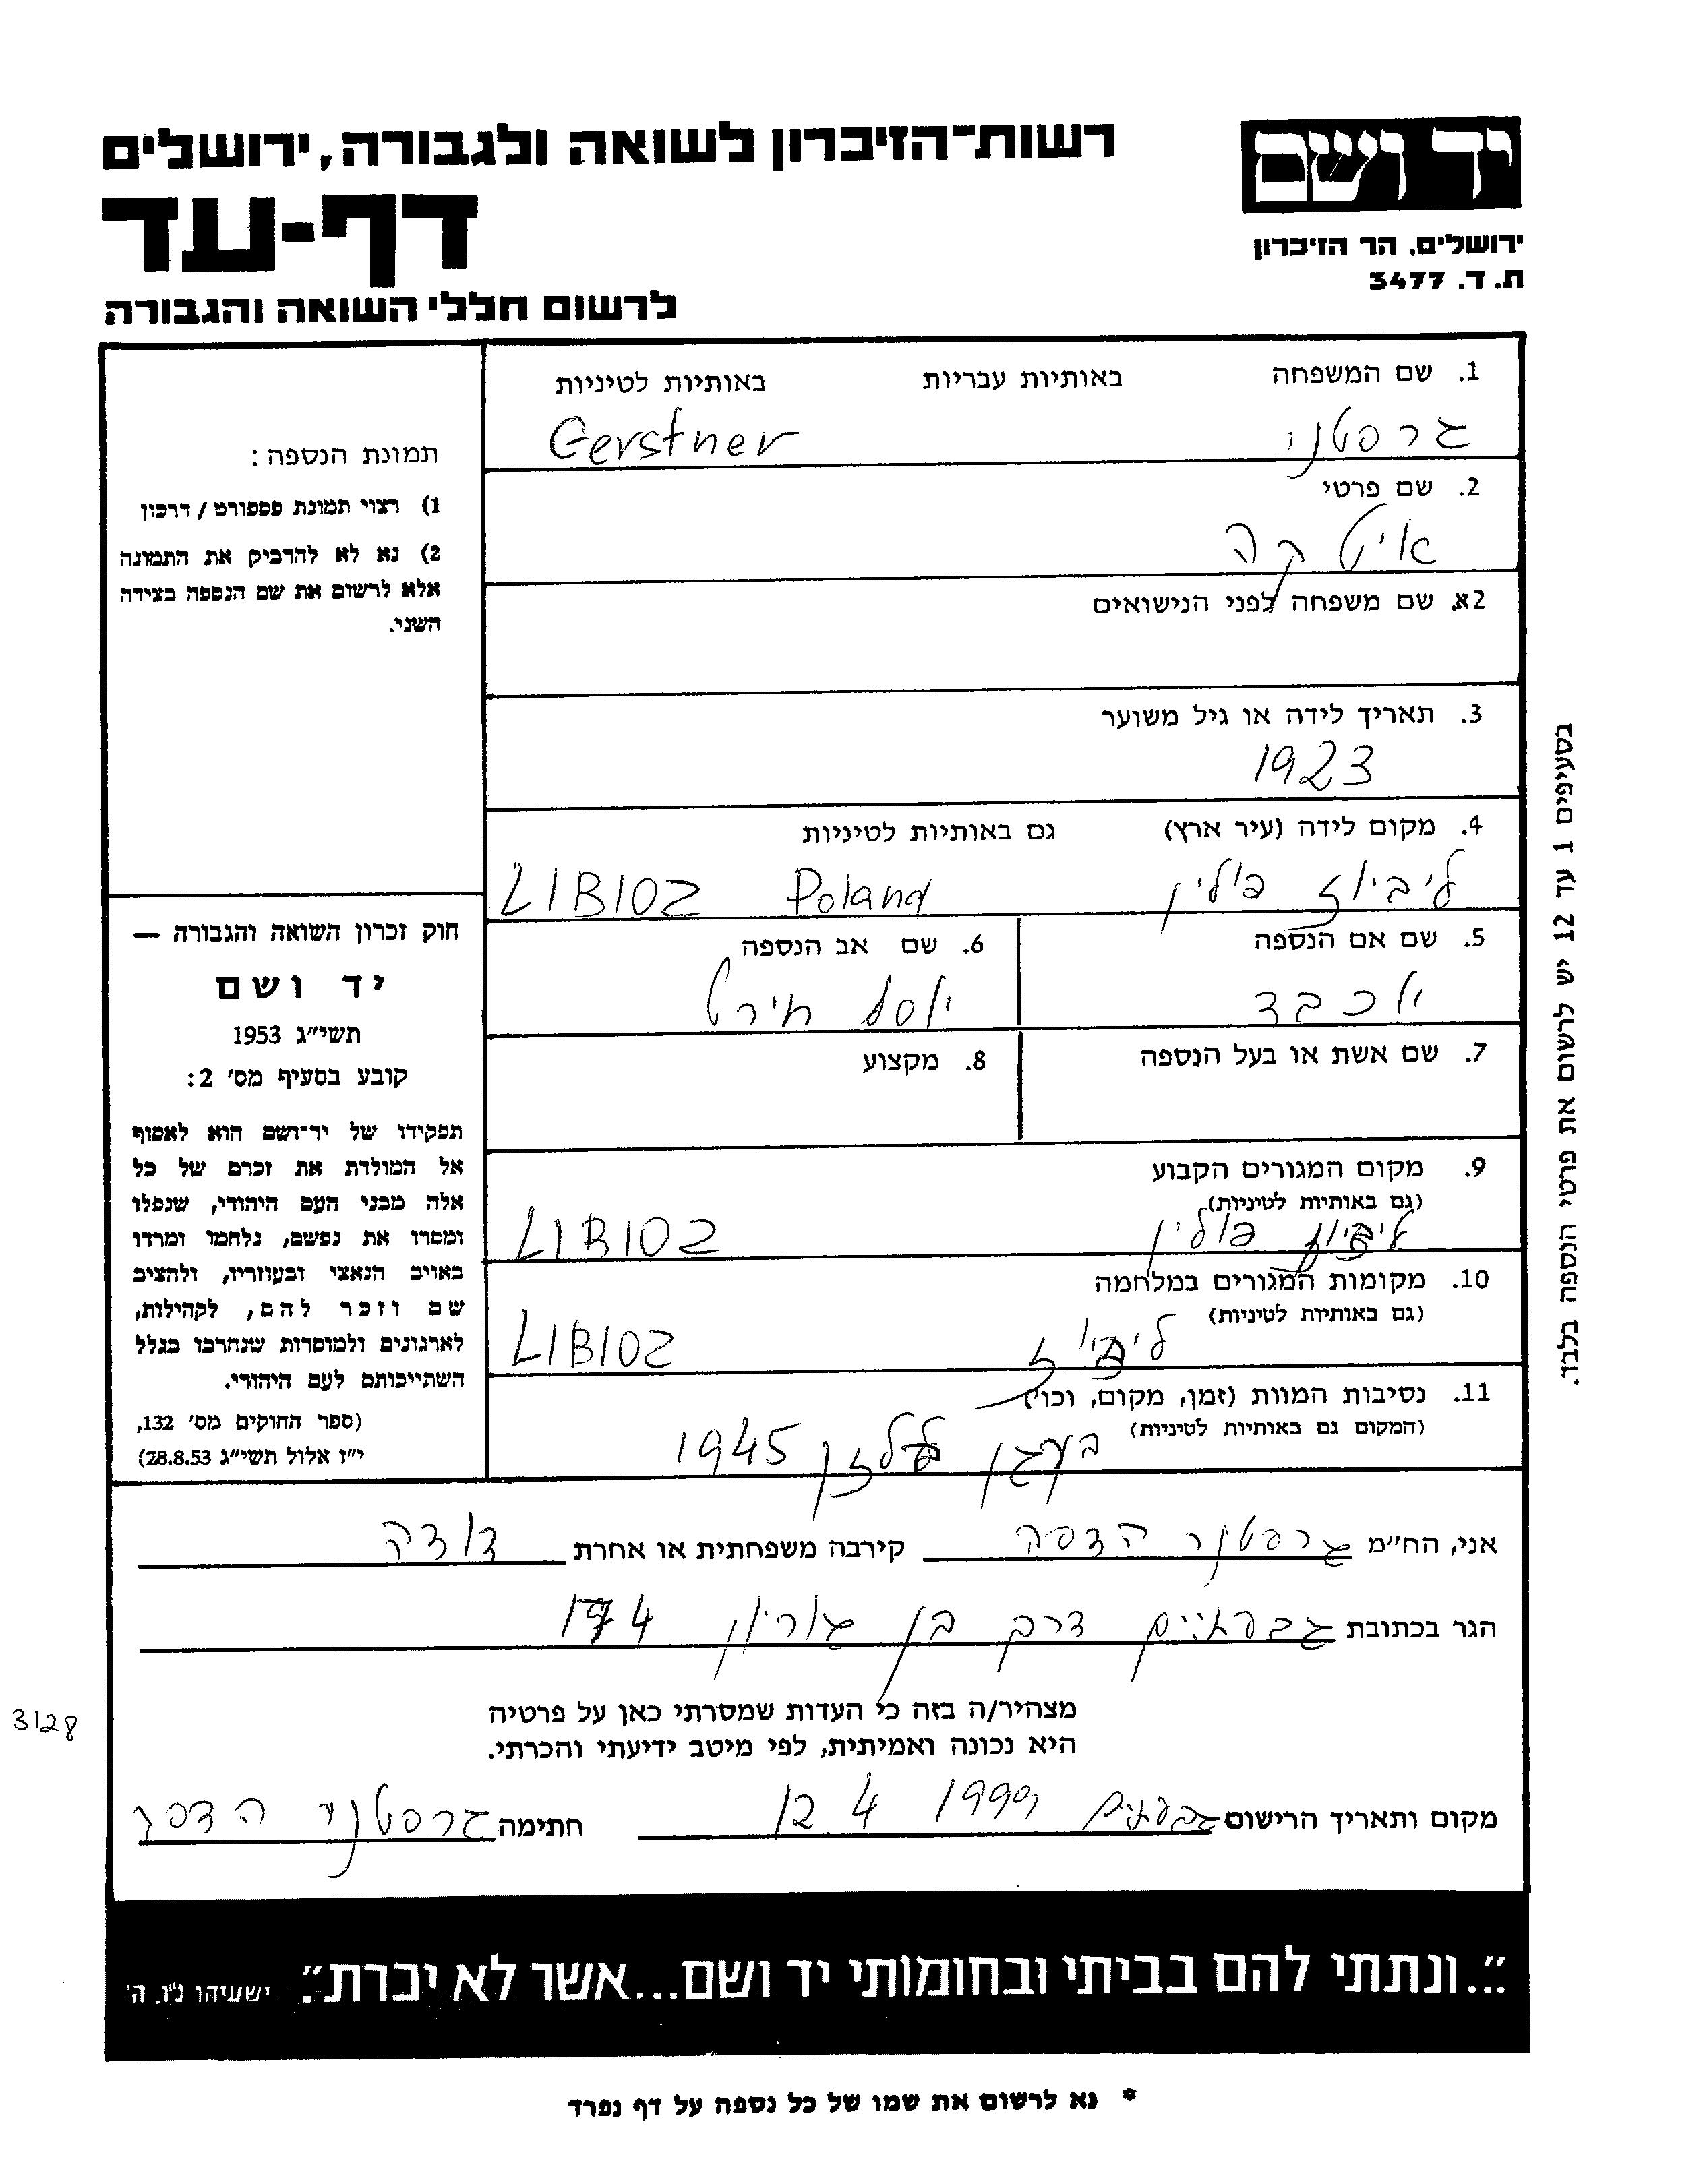 יד ושם
ירושלים, הר הזיכרון
ת. ד. 3477
רשות־הזיכרון לשואה ולגבורה, ירושלים
דף-עד
לרשום חללי השואה והגבורה
1. שם המשפחה באותיות עבריות באותיות לטיניות
גרסטנר Gerstner
2. שם פרטי
איטקה
2א. שם משפחה לפני הנישואים
3. תאריך לידה או גיל משוער
1923
4. מקום לידה (עיר ארץ) גם באותיות לטיניות
ליביוז פולין LIBIOZ Poland
5. שם אם הנספה 6. שם אב הנספה
יוכבד יוסף
7. שם אשת או בעל הנספה 8. מקצוע
9. מקום המגורים הקבוע
(גם באותיות לטיניות)
ליביוז פולין LIBIOZ
10. מקומות המגורים במלחמה
(גם באותיות לטיניות)
ליביוז LIBIOZ
11. נסיבות המוות (זמן, מקום, וכו׳)
(המקום גם באותיות לטיניות)
ברגן בלזן 1945
תמונת הנספה:
1) רצוי תמונת פספורט / דרכון
2) נא לא להדביק את התמונה
אלא לרשום את שם הנספה בצידה
השני.
חוק זכרון השואה והגבורה —
יד ושם
תשי״ג 1953
קובע בסעיף מס׳ 2:
תפקידו של יד־ושם הוא לאסוף
אל המולדת את זכרם של כל
אלה מבני העם היהודי, שנפלו
ומסרו את נפשם, נלחמו ומרדו
באויב הנאצי ובעוזריו, ולהציב
שם וזכר להם, לקהילות,
לארגונים ולמוסדות שנחרבו בגלל
השתייכותם לעם היהודי.
(ספר החוקים מס׳ 132,
י״ז אלול תשי״ג 28.8.53)
בסעיפים 1 עד 12 יש לרשום את פרטי הנספה בלבד.
אני, הח״מ גרסטנר הדסה קירבה משפחתית או אחרת דודה
הגר בכתובת גבעתיים דרך בן גוריון 174
מצהיר/ה בזה כי העדות שמסרתי כאן על פרטיה
היא נכונה ואמיתית, לפי מיטב ידיעתי והכרתי.
3128
מקום ותאריך הרישום גבעתיים 1999 4 12 חתימה גרסטנר הדסה
"...ונתתי להם בביתי ובחומותי יד ושם...אשר לא יכרת". ישעיהו נ״ו, ה׳
* נא לרשום את שמו של כל נספה על דף נפרד